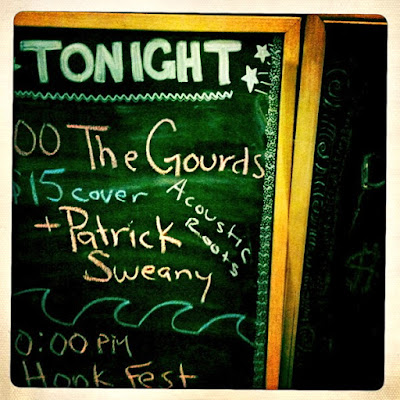 TONIGHT
00 The Gourds
$15 cover
Acoustic
Roots
+ Patrick
Sweany
0:00 PM
Honk Fest